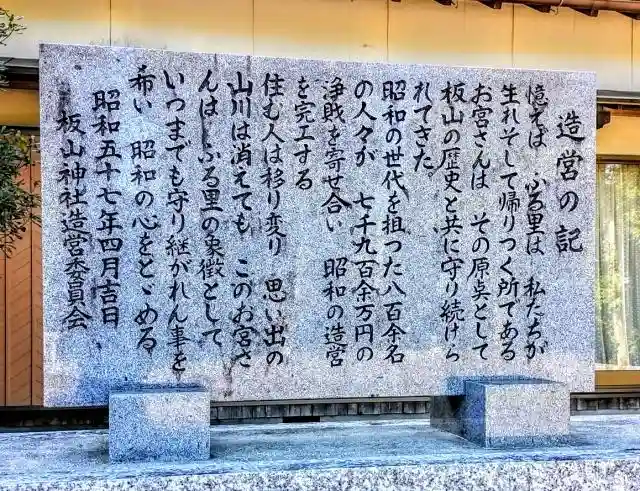 造営の記
憶えば ふる里は 私たちが
生れそして帰りつく所である
お宮さんは その原点として
板山の歴史と共に守り続けら
れてきた。
昭和の世代を担った八百余名
の人々が 七千九百余万円の
浄財を寄せ合い 昭和の造営
を完工する
住む人は移り変り 思い出の
山川は消えても このお宮さ
んは ふる里の象徴として
いつまでも守り継がれん事を
希い 昭和の心をとゞめる
昭和五十七年四月吉日
板山神社造営委員会